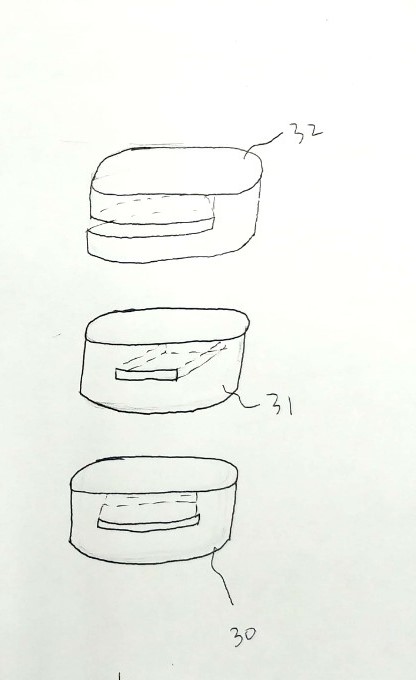 32
31
30